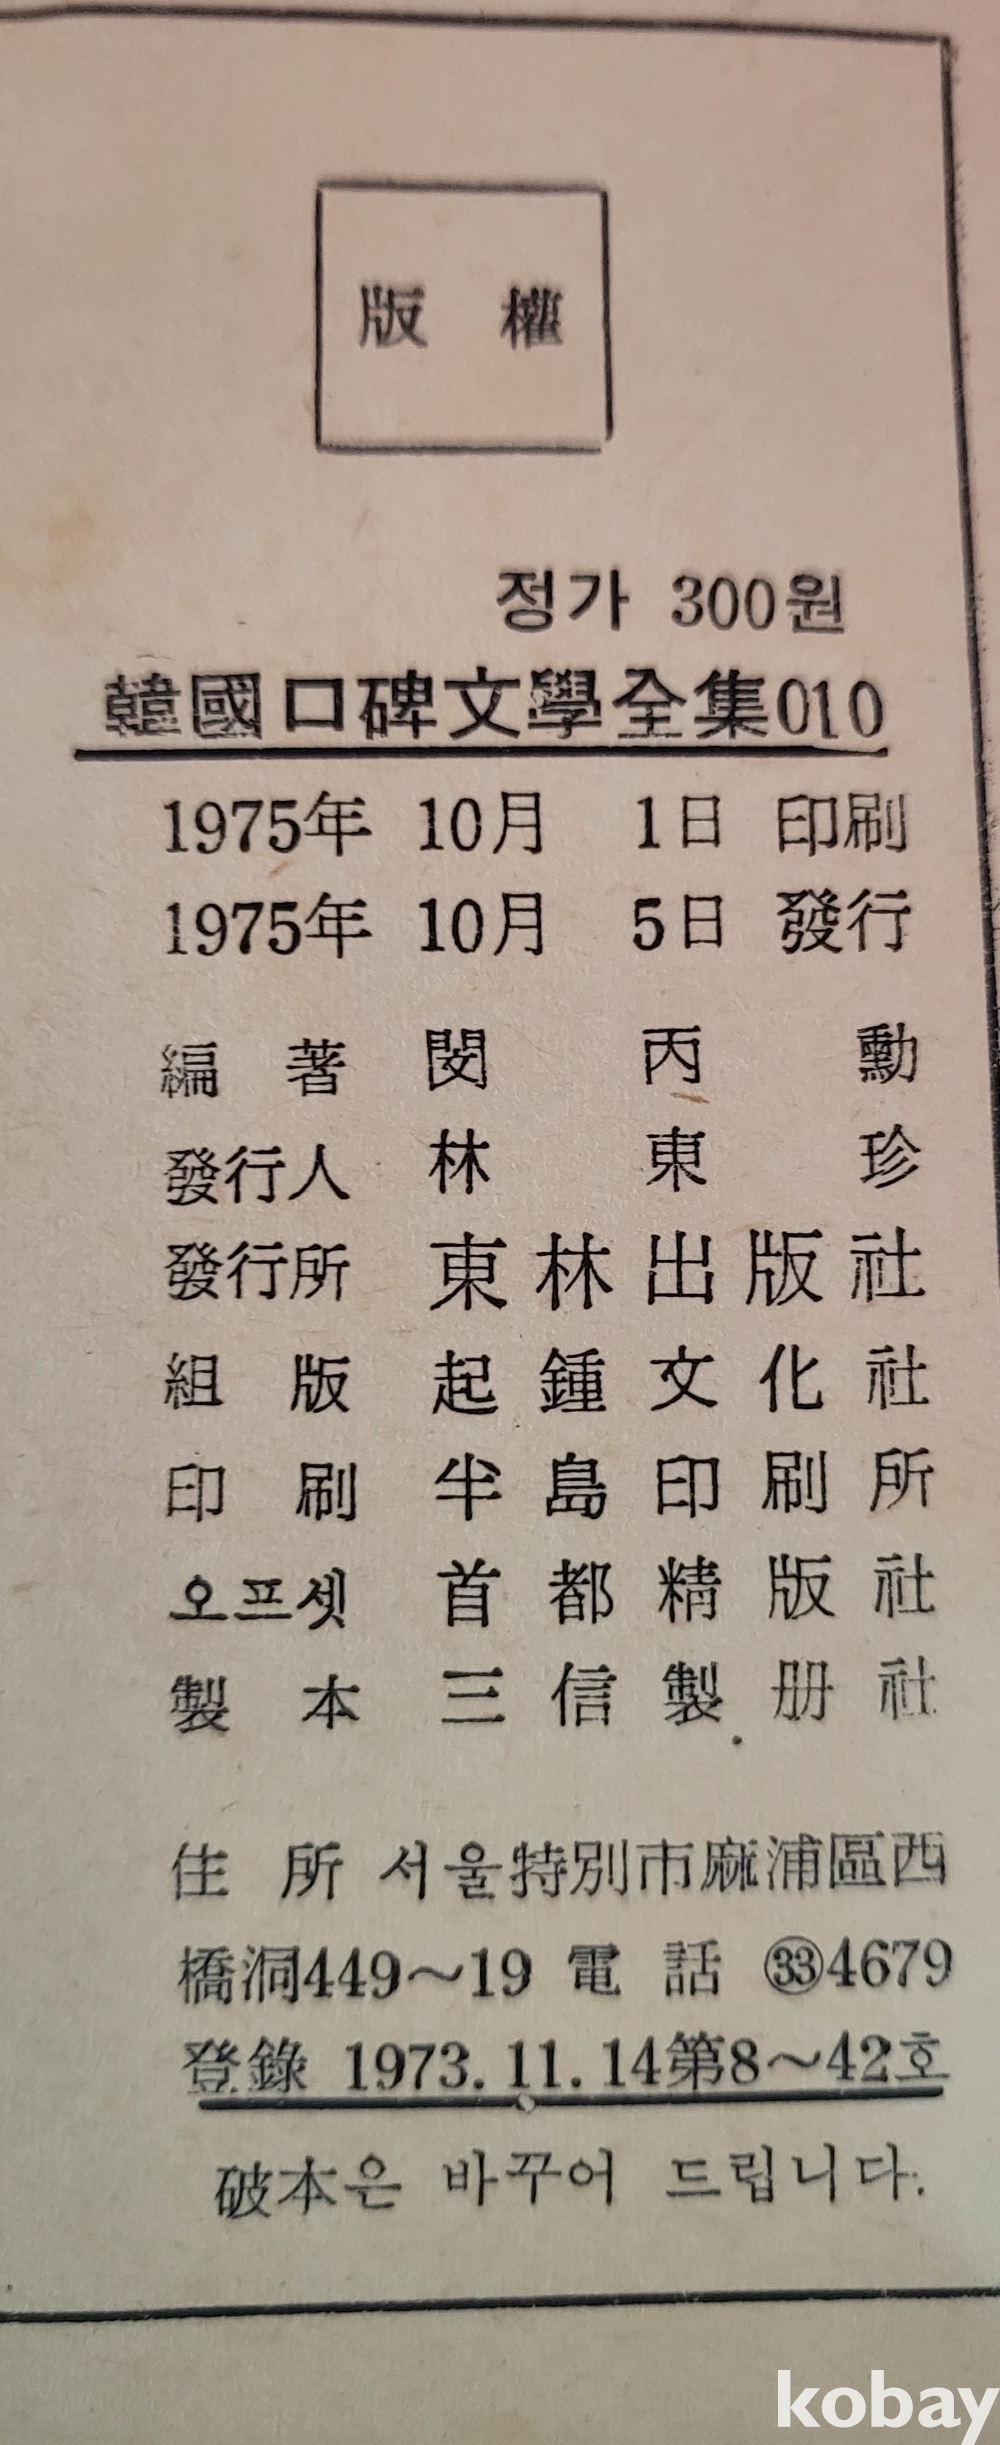 版 權
정가 300원
韓國口碑文學全集010
1975年 10月 1日 印刷
1975年 10月 5日 發行
編 著 閔 丙 勳
發行人 林 東 珍
發行所 東林出版社
組 版 起鍾文化社
印 刷 半島印刷所
오프셋 首都精版社
製 本 三信製册社
住 所 서울特別市麻浦區西
橋洞449～19 電 話 ㉝4679
登錄 1973. 11. 14第8～42호
破本은 바꾸어 드립니다.
kobay